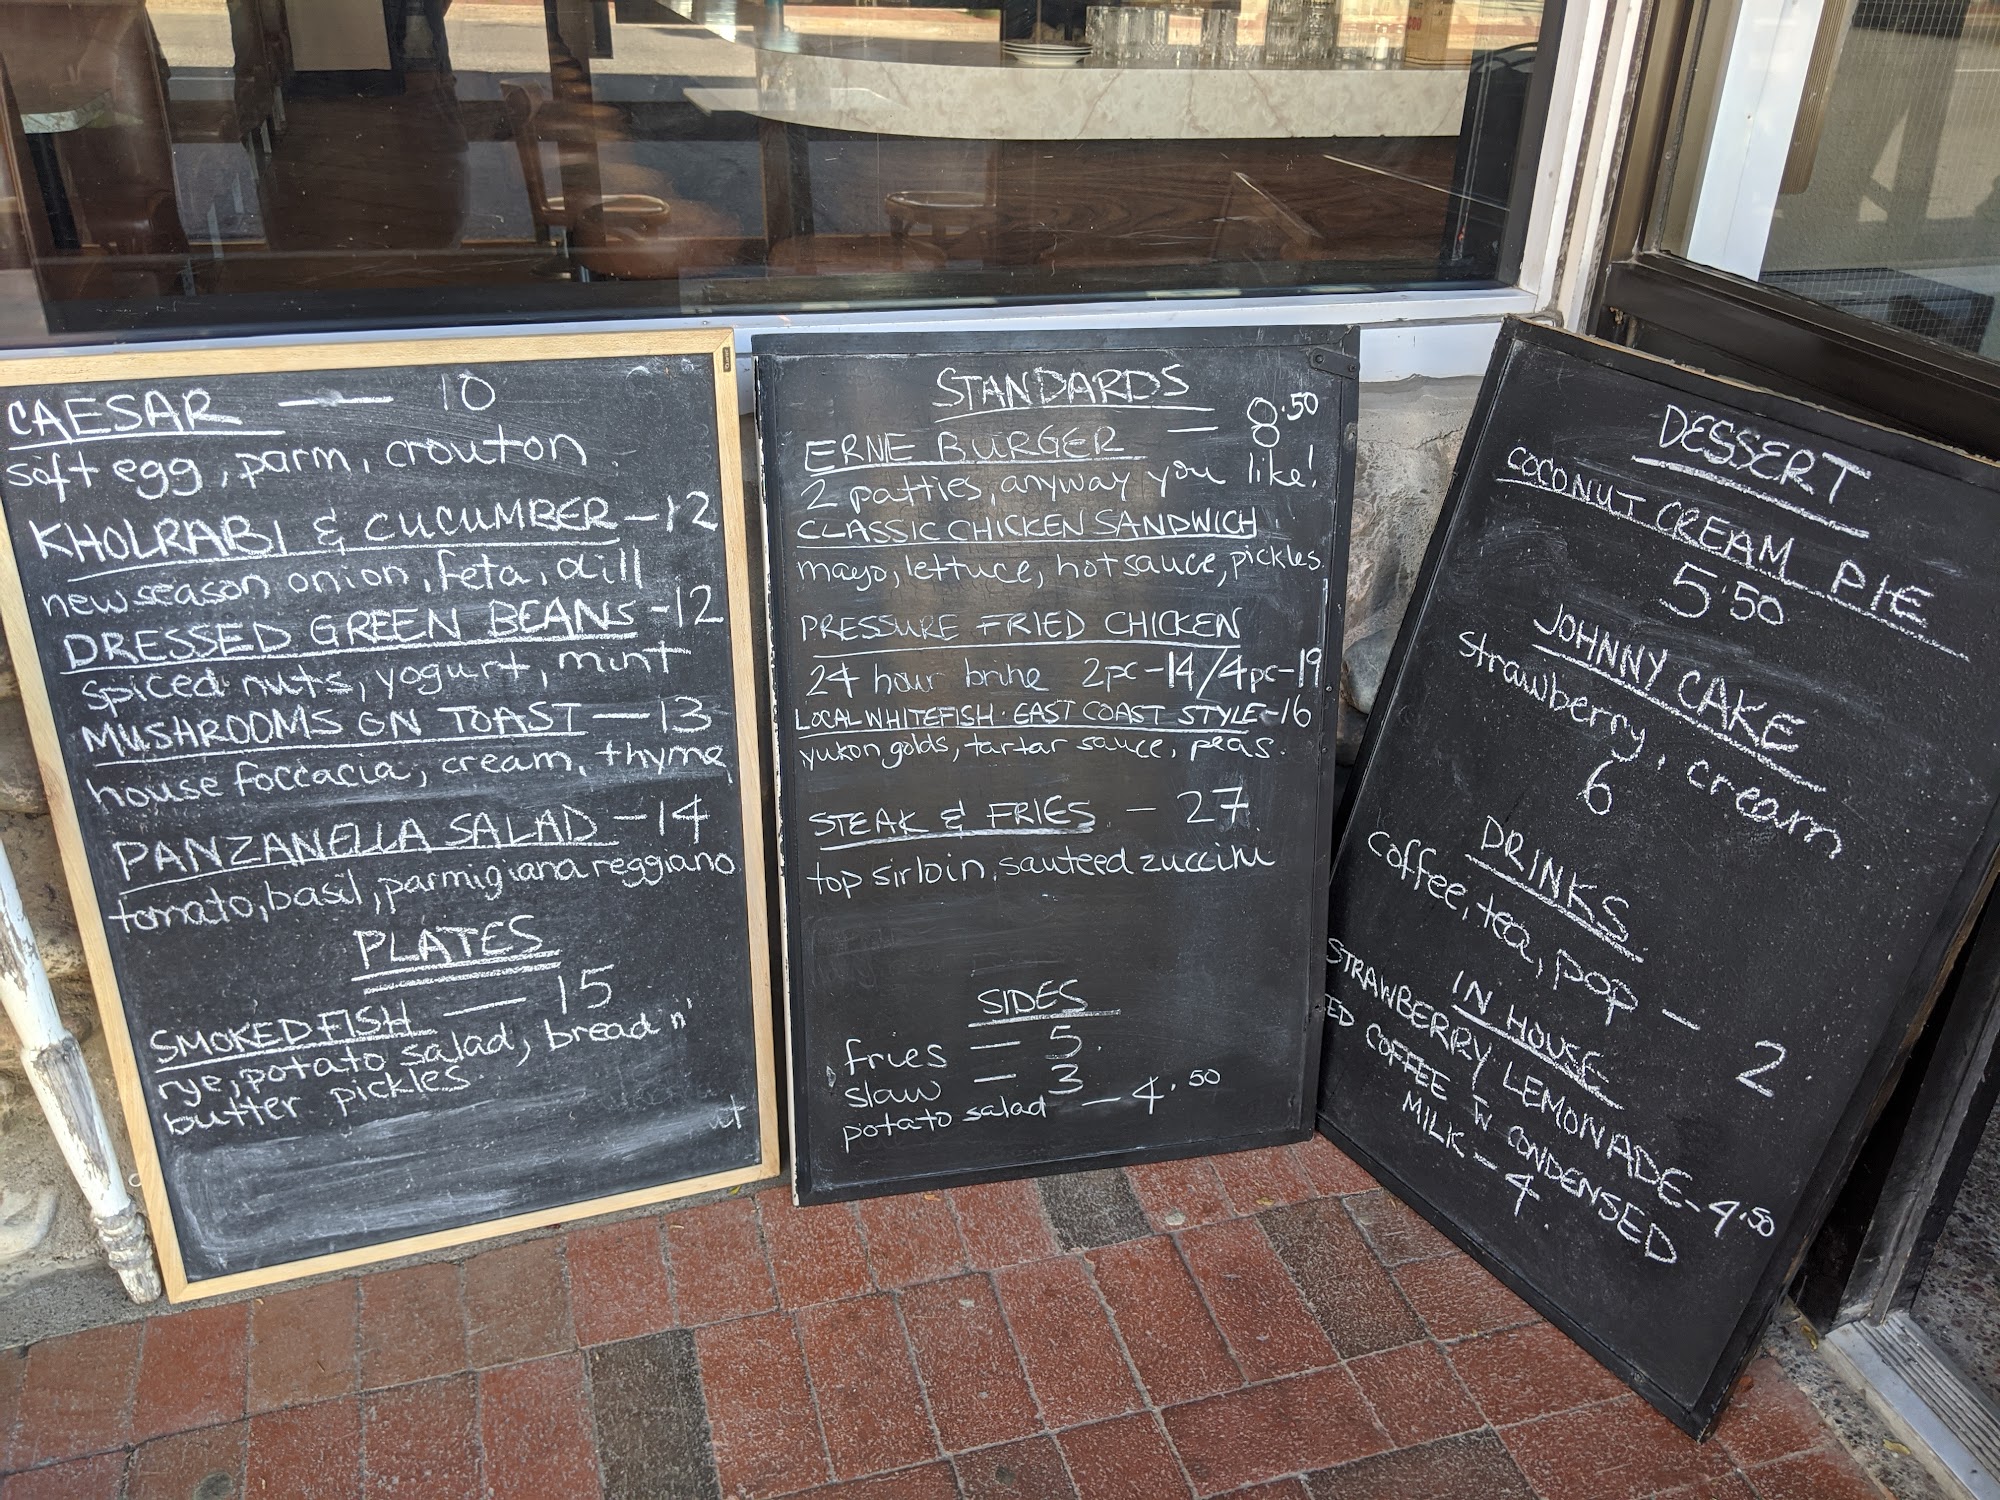 CAESAR — 10
soft egg, parm, crouton
KHOLRABI & CUCUMBER - 12
new season onion, feta, dill
DRESSED GREEN BEANS - 12
spiced nuts, yogurt, mint
MUSHROOMS ON TOAST — 13
house foccacia, cream, thyme
PANZANELLA SALAD - 14
tomato, basil, parmigiana reggiano
PLATES
SMOKED FISH — 15
rye, potato salad, bread n'
butter pickles
STANDARDS
ERNIE BURGER — 8.50
2 patties, anyway you like!
CLASSIC CHICKEN SANDWICH
mayo, lettuce, hot sauce, pickles.
PRESSURE FRIED CHICKEN
24 hour brine 2pc-14/4pc-19
LOCAL WHITEFISH · EAST COAST STYLE - 16
yukon golds, tartar sauce, peas.
STEAK & FRIES - 27
top sirloin, sauteed zuccini
SIDES
fries — 5.
slaw — 3
potato salad — 4.50
DESSERT
COCONUT CREAM PIE
5.50
JOHNNY CAKE
strawberry, cream
6
DRINKS
coffee, tea, pop — 2
IN HOUSE
STRAWBERRY LEMONADE - 4.50
ED COFFEE W CONDENSED
MILK - 4